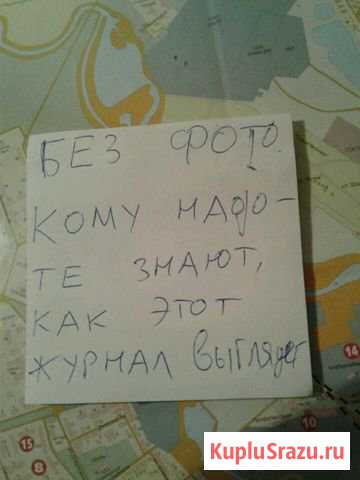 БЕЗ ФОТО.
КОМУ НАДО-
ТЕ ЗНАЮТ,
КАК ЭТОТ
ЖУРНАЛ ВЫГЛЯДЕТ
14
10
15
8
KupluSrazu.ru